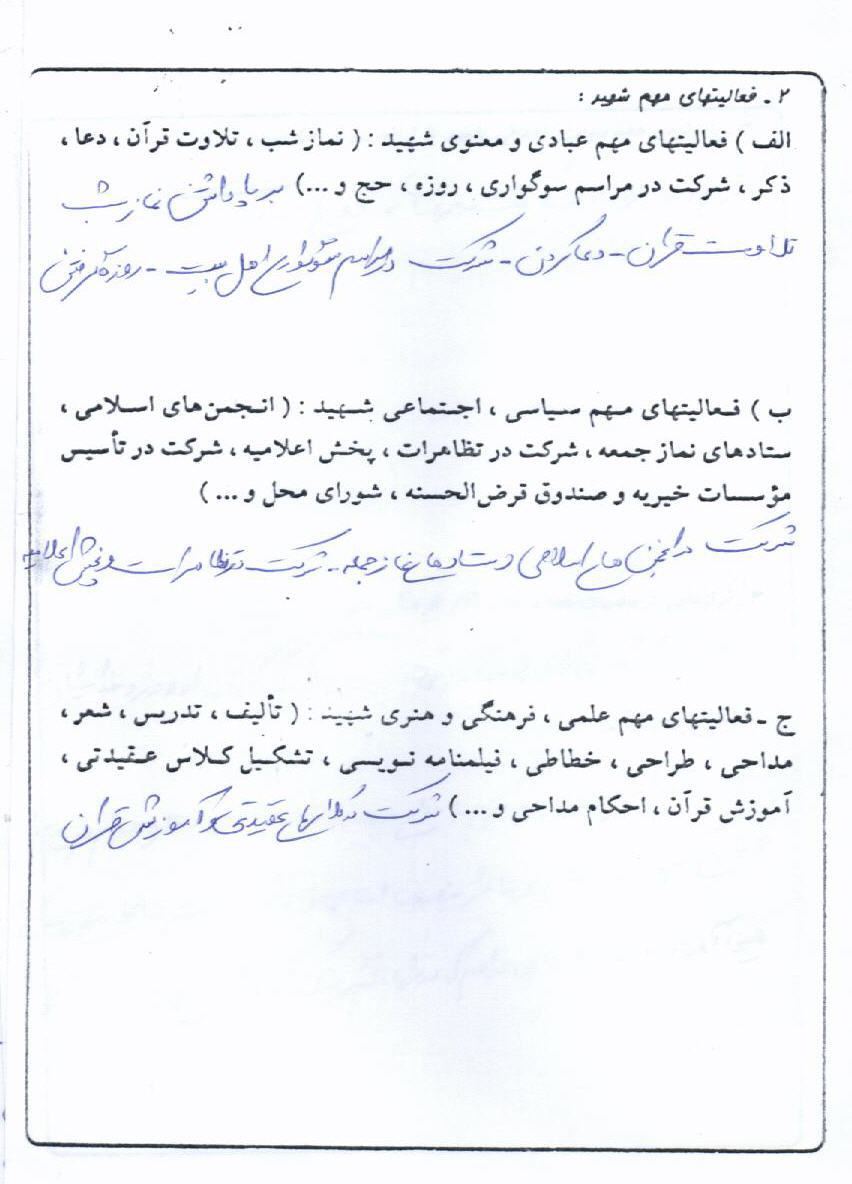 ۲ ـ فعالیتهای مهم شهید :
الف ) فعالیتهای مهم عبادی و معنوی شهید : ( نماز شب ، تلاوت قرآن ، دعا ،
ذکر ، شرکت در مراسم سوگواری ، روزه ، حج و ...) برپا داشتن نماز شب
تلاوت قرآن - دعا کردن - شرکت در مراسم سوگواری اهل بیت - روزه گرفتن
ب ) فعالیتهای مهم سیاسی ، اجتماعی شهید : ( انجمن‌های اسلامی ،
ستادهای نماز جمعه ، شرکت در تظاهرات ، پخش اعلامیه ، شرکت در تأسیس
مؤسسات خیریه و صندوق قرض‌الحسنه ، شورای محل و ... )
شرکت در انجمن های اسلامی و ستادهای نماز جمعه - شرکت در تظاهرات و پخش اعلامیه
ج ـ فعالیتهای مهم علمی ، فرهنگی و هنری شهید : ( تألیف ، تدریس ، شعر ،
مداحی ، طراحی ، خطاطی ، فیلمنامه نویسی ، تشکیل کلاس عقیدتی ،
آموزش قرآن ، احکام مداحی و ... ) شرکت در کلاسهای عقیدتی و آموزش قرآن